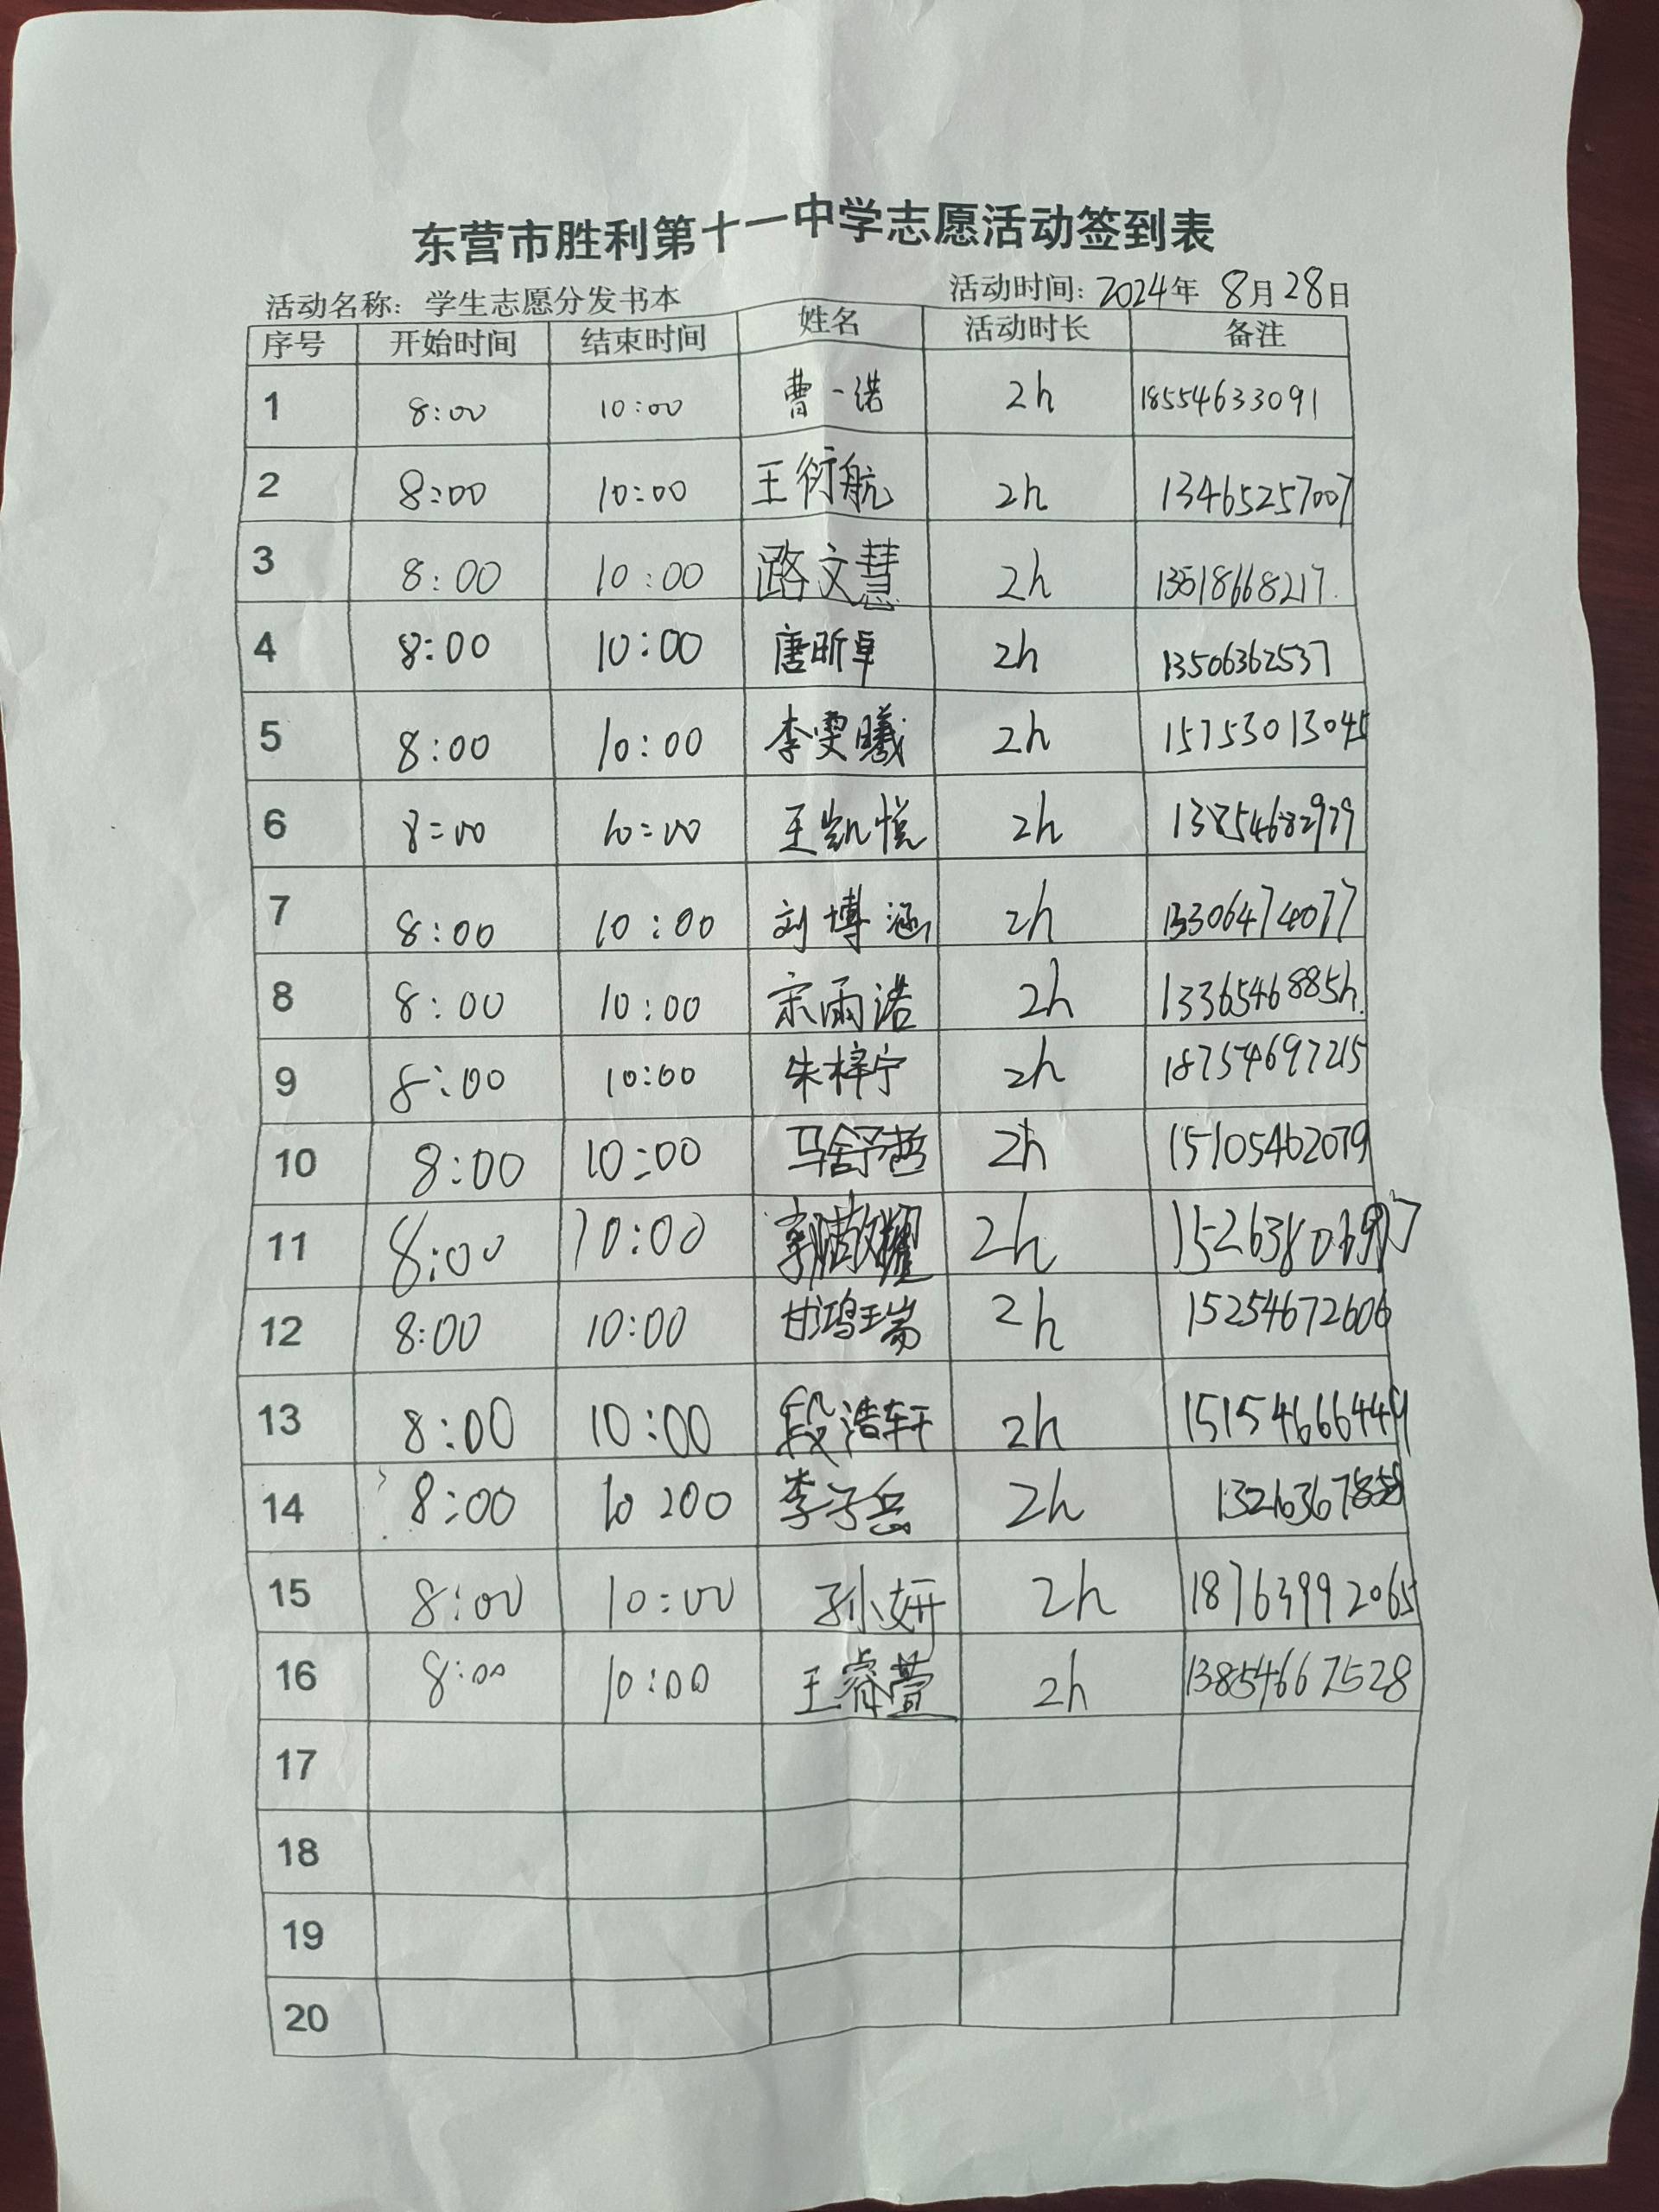 东营市胜利第十一中学志愿活动签到表
活动名称：学生志愿分发书本 活动时间：2024年 8月28日
序号 开始时间 结束时间 姓名 活动时长 备注
1 8:00 10:00 曹一诺 2h 18554633091
2 8:00 10:00 王衍航 2h 13465257007
3 8:00 10:00 路文慧 2h 13518668217.
4 8:00 10:00 唐昕卓 2h 13506362537
5 8:00 10:00 李雯曦 2h 15753013045
6 8:00 10:00 王凯悦 2h 13854682979
7 8:00 10:00 刘博涵 2h 13306474077
8 8:00 10:00 宋雨诺 2h
9 8:00 10:00 朱梓宁 2h 18754697215
10 8:00 10:00 马舒哲 2h 15105462079
11 8:00 10:00 2h
12 8:00 10:00 甘鸿瑞 2h 15254672606
13 8:00 10:00 段浩轩 2h 15154666449
14 8:00 10:00 李子岳 2h
15 8:00 10:00 孙妍 2h 18763992065
16 8:00 10:00 王睿萱 2h 13854667528
17
18
19
20